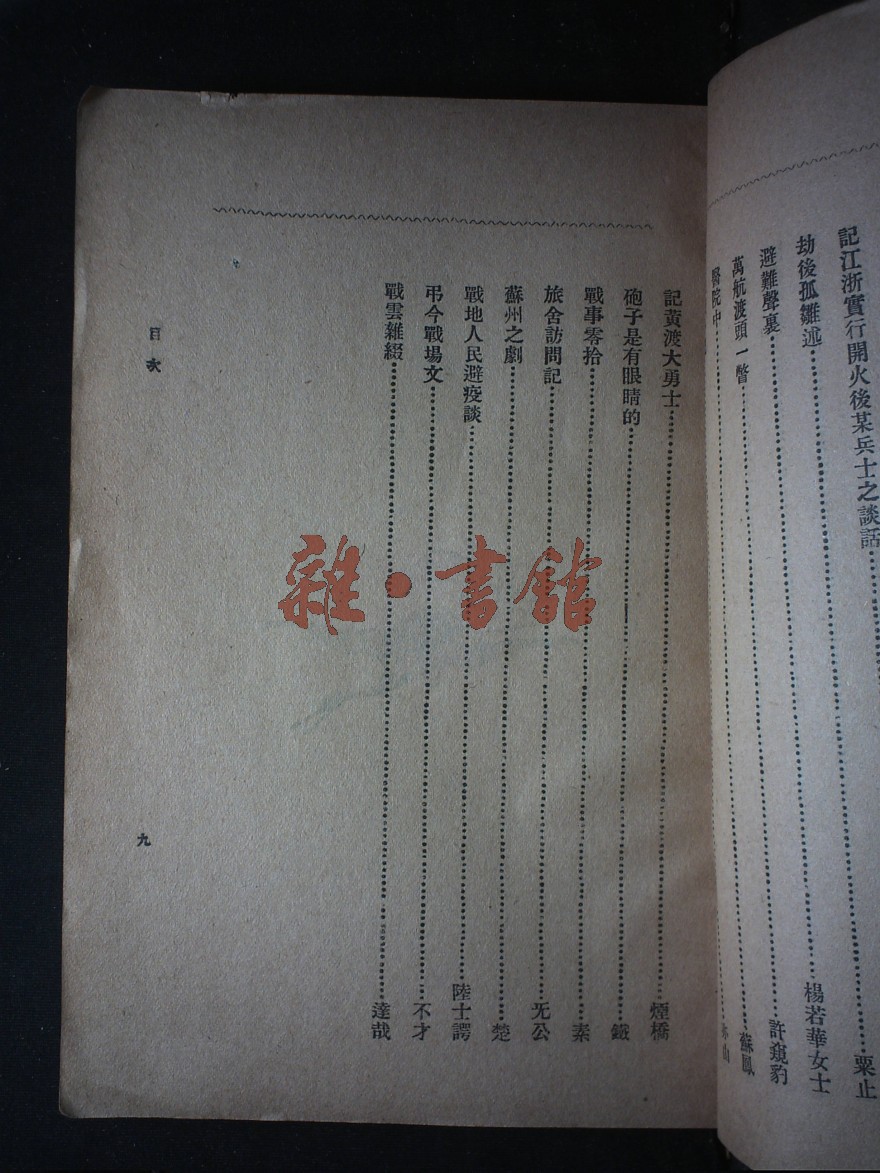 記江浙實行開火後某兵士之談話 粟止
劫後孤雛述 楊若華女士
避難聲裏 許窺豹
萬航渡頭一瞥 蘇鳳
醫院中
記黃渡大勇士 煙橋
砲子是有眼睛的 鐵
戰事零拾 素
旅舍訪問記 旡公
蘇州之劇 楚
戰地人民避疫談 陸士諤
弔今戰場文 不才
戰雲雜綴 達哉
目次
九
雜·書館